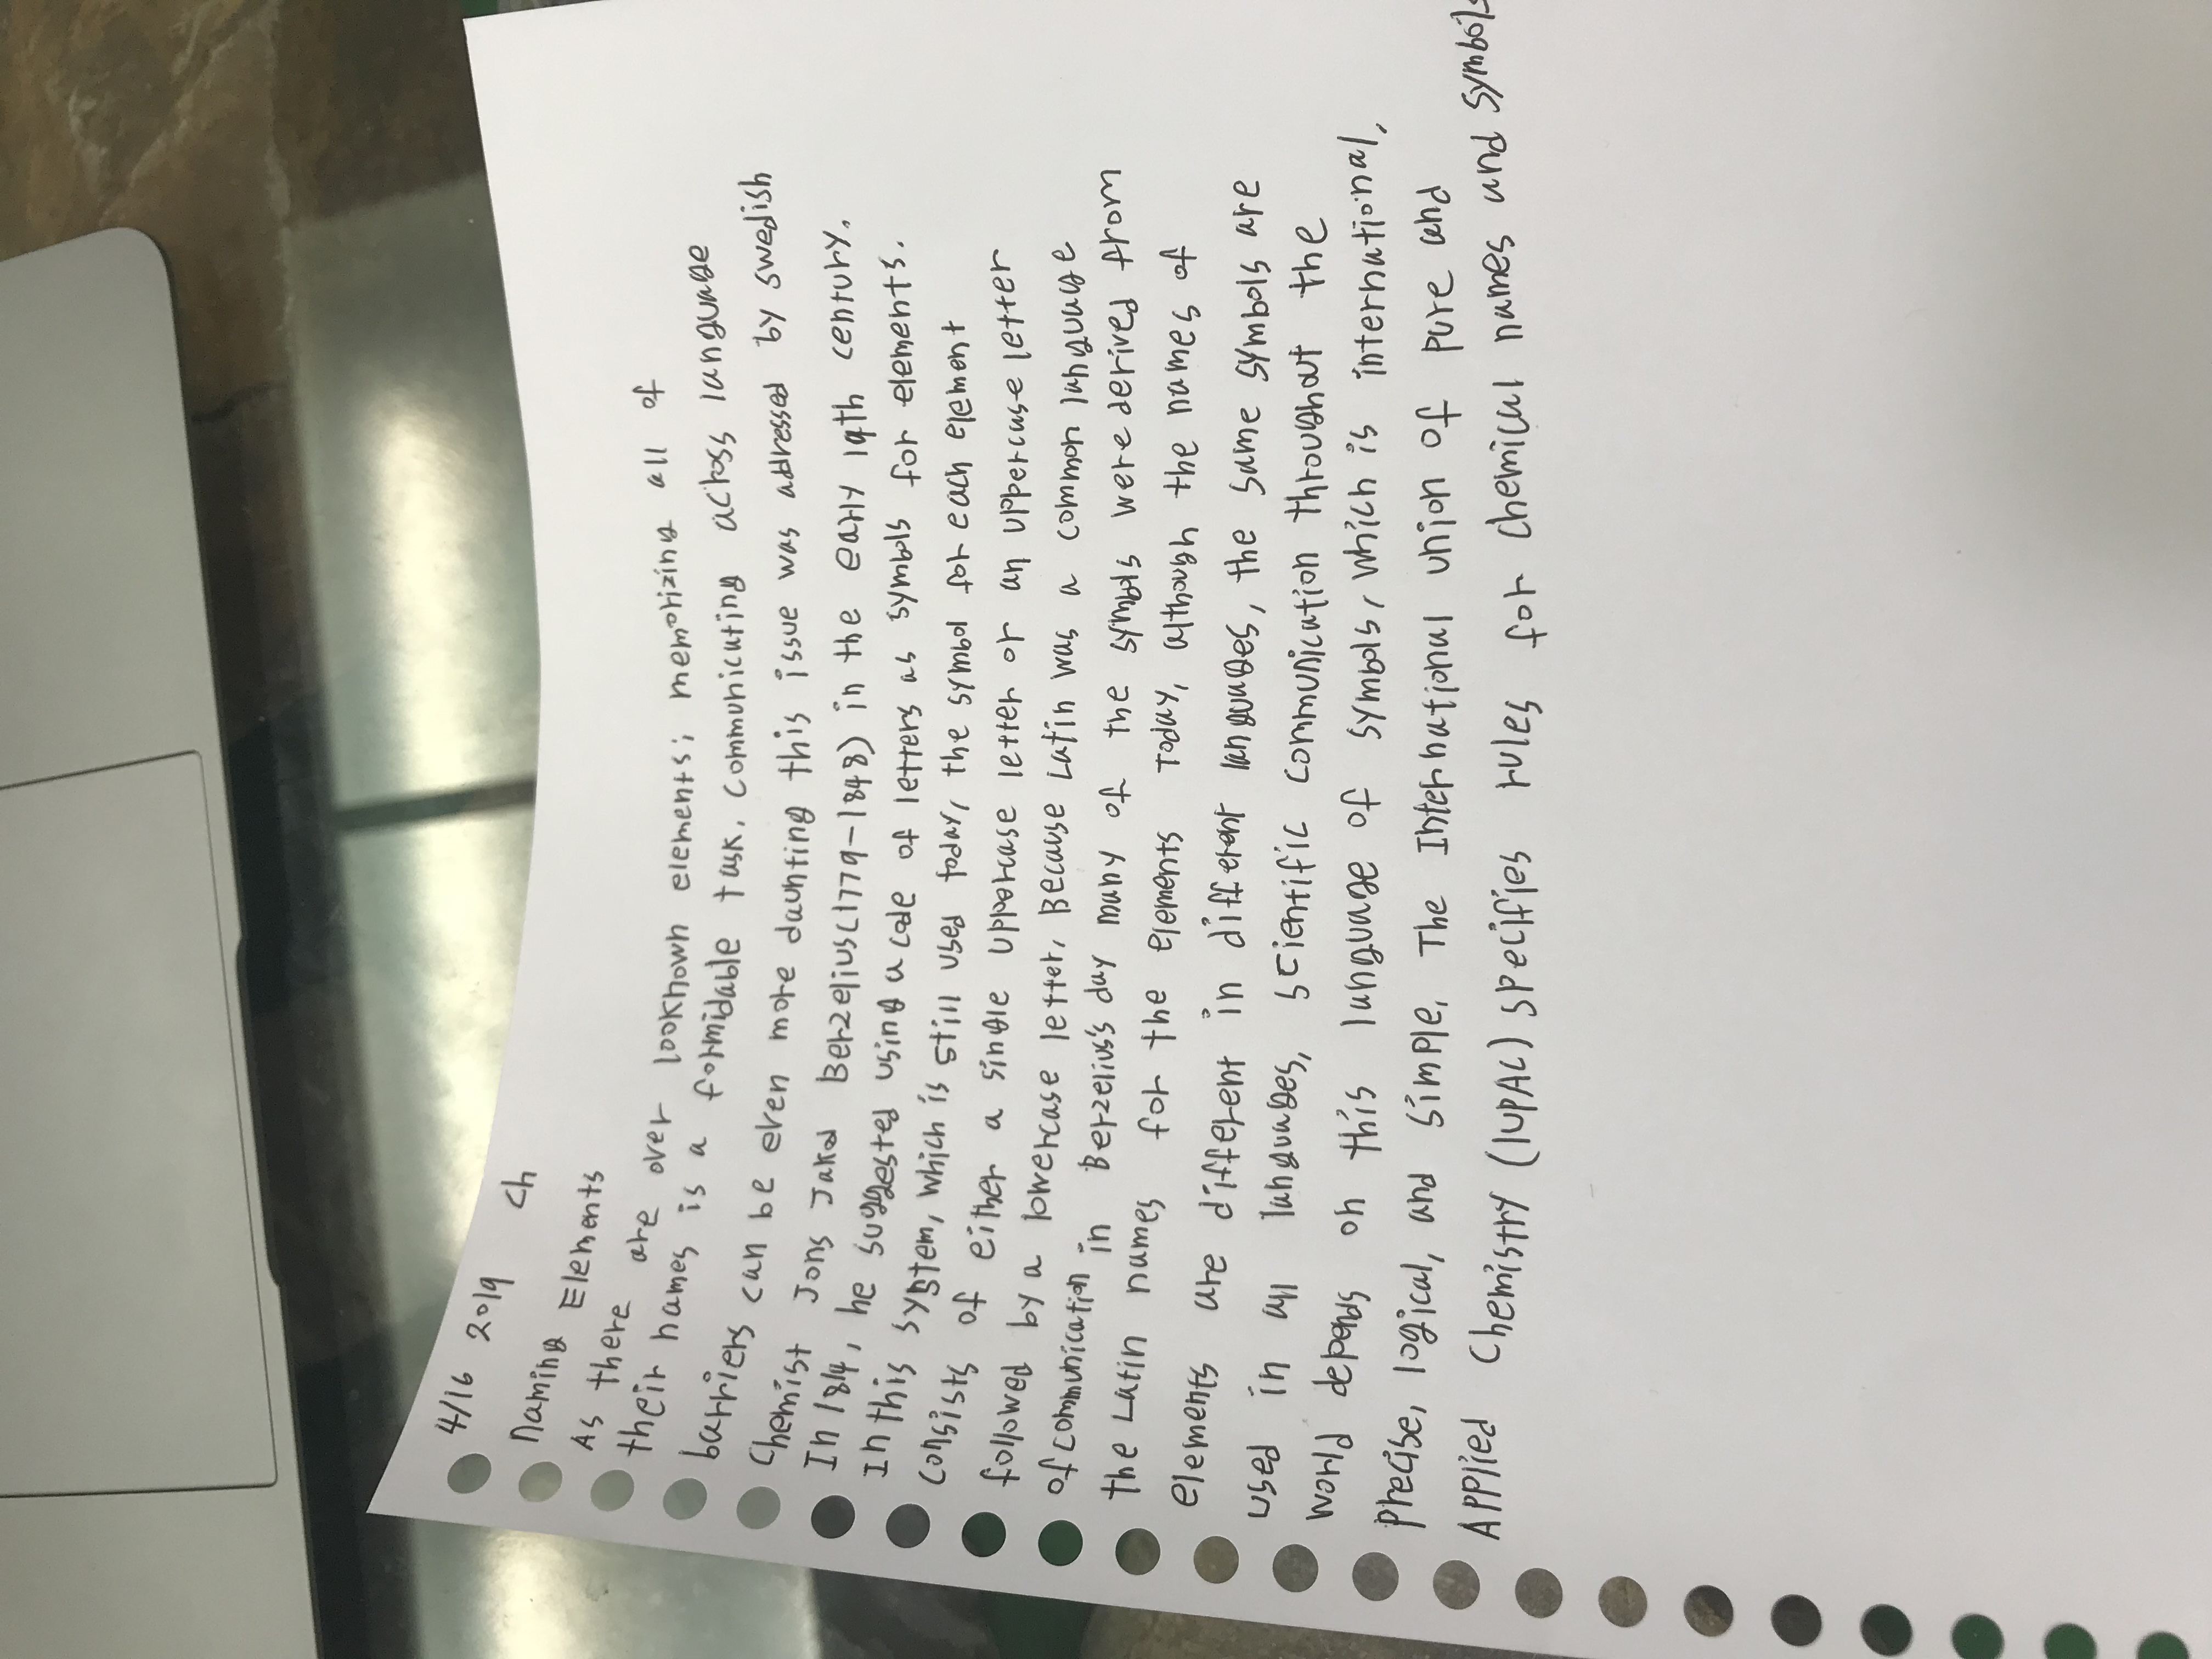 4/16 2019 Ch
Naming Elements
As there are over lookhown elements; memorizing all of
their names is a formidable task, communicating across language
barriers can be even more daunting this issue was addressed by swedish
Chemist Jons Jakob Berzelius(1779-1848) in the early 19th century.
In 1814, he suggested using a code of letters as symbols for elements.
In this system, which is still used today, the symbol for each element
consists of either a single uppercase letter or an uppercase letter
followed by a lowercase letter, Because Latin was a common language
of communication in Berzelius's day many of the symbols were derived from
the Latin names for the elements Today, although the names of
elements are different in different languages, the same symbols are
used in all languages, scientific communication throughout the
world depends on this language of symbols, which is international,
precise, logical, and simple, The International union of pure and
Applied Chemistry (IUPAC) specifies rules for chemical names and symbols